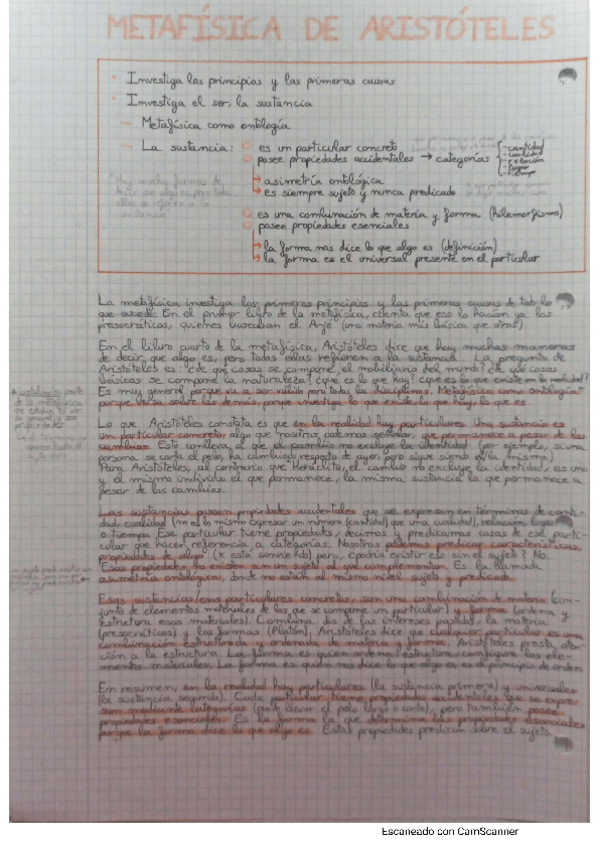 METAFÍSICA DE ARISTÓTELES
· Investiga los principios y las primeras causas
· Investiga el ser, la sustancia
– Metafísica como ontología
– La sustancia: es un particular concreto
posee propiedades accidentales → categorías - cantidad
- cualidad
- relación
- lugar
- tiempo
"Hay muchas formas de decir que algo es, pero todas ellas se refieren a la sustancia"
↳ asimetría ontológica
↳ es siempre sujeto y nunca predicado
es una combinación de materia y forma (hilemorfismo)
posee propiedades esenciales
↳ la forma nos dice lo que algo es (definición)
↳ la forma es el universal presente en el particular
La metafísica investiga los primeros principios y las primeras causas de todo lo
que sucede. En el primer libro de la metafísica, cuenta que eso lo hacían ya los
presocráticos, quienes buscaban el Arjé (una materia más básica que otras)
En el libro cuarto de la metafísica, Aristóteles dice que hay muchas maneras
de decir que algo es, pero todas ellas refieren a la sustancia. La pregunta de
Aristóteles es: ¿de qué cosas se compone el mobiliario del mundo? ¿de qué cosas
básicas se compone la naturaleza? ¿que es lo que hay? ¿que es lo que existe en la realidad?
Es muy general porque va a ser válido para todas las disciplinas. Metafísica como ontología
porque versa sobre las demás, porque investiga lo que existe, lo que hay, lo que es
Lo que Aristóteles constata es que en la realidad hay particulares. Una sustancia es
un particular concreto, algo que nosotros podemos señalar, que permanece a pesar de los
cambios. Esto conlleva a que el cambio no excluye la identidad (por ejemplo, si una
persona se corta el pelo, ha cambiado respecto de ayer, pero sigue siendo ella misma)
Para Aristóteles, al contrario que Heráclito, el cambio no excluye la identidad, es uno
y el mismo individuo el que permanece, la misma sustancia la que permanece a
pesar de los cambios.
Las sustancias poseen propiedades accidentales que se expresan en términos de canti-
dad, cualidad (no es lo mismo expresar un número (cantidad) que una cualidad), relación, lugar
o tiempo. Ese particular tiene propiedades, decimos y predicamos cosas de ese parti-
cular que hacen referencia a categorías. Nosotros podemos predicar características,
propiedades de algo (x está sonriendo) pero, ¿podría existir eso sin el sujeto? No.
Esas propiedades no existen sin un sujeto al que complementan. Es la llamada
asimetría ontológica, donde no están al mismo nivel sujeto y predicado.
Esas sustancias/esos particulares concretos, son una combinación de materia (con-
junto de elementos materiales de los que se compone un particular) y forma (ordena y
estructura esos materiales). Combina dos de los intereses pasados, la materia
(presocráticos) y las formas (Platón), Aristóteles dice que cualquier particular es una
combinación estructurada y ordenada de materia y forma. Aristóteles presta aten-
ción a la estructura. La forma es quien ordena, estructura, configura los ele-
mentos materiales. La forma es quien nos dice lo que algo es, es el principio de orden
En resumen, en la realidad hay particulares (la sustancia primera) y universales
(la sustancia segunda). Cada particular tiene propiedades accidentales que se expre-
san mediante categorías (puede llevar el pelo largo o corto), pero también posee
propiedades esenciales. Es la forma la que determina las propiedades esenciales
porque la forma dice lo que algo es. Estas propiedades predican sobre el sujeto.
Escaneado con CamScanner